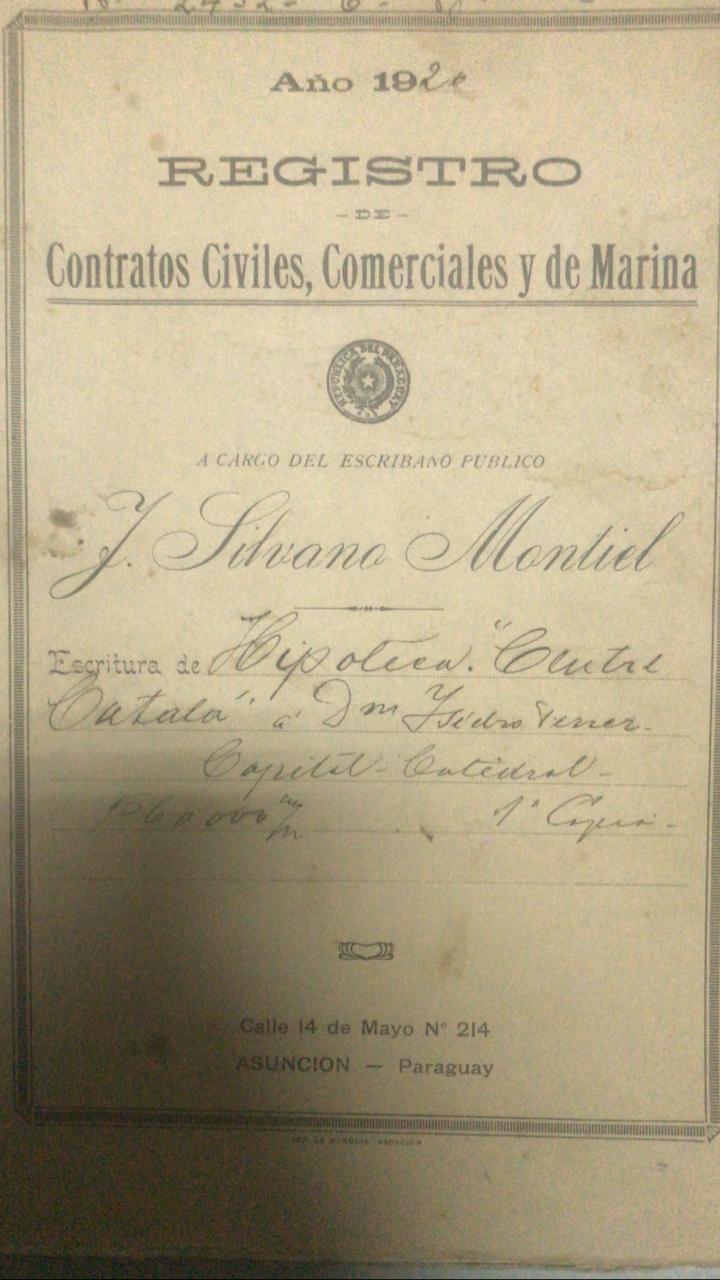 Año 1920
REGISTRO
- DE -
Contratos Civiles, Comerciales y de Marina
REPUBLICA DEL PARAGUAY
A CARGO DEL ESCRIBANO PUBLICO
J. Silvano Montiel
Escritura de Hipoteca. "Centre
Català" á Dn Isidro Ferrer.-
Capital - Catedral -
1ª Copia.-
Calle 14 de Mayo Nº 214
ASUNCION — Paraguay
IMP. LA MUNDIAL ASUNCION